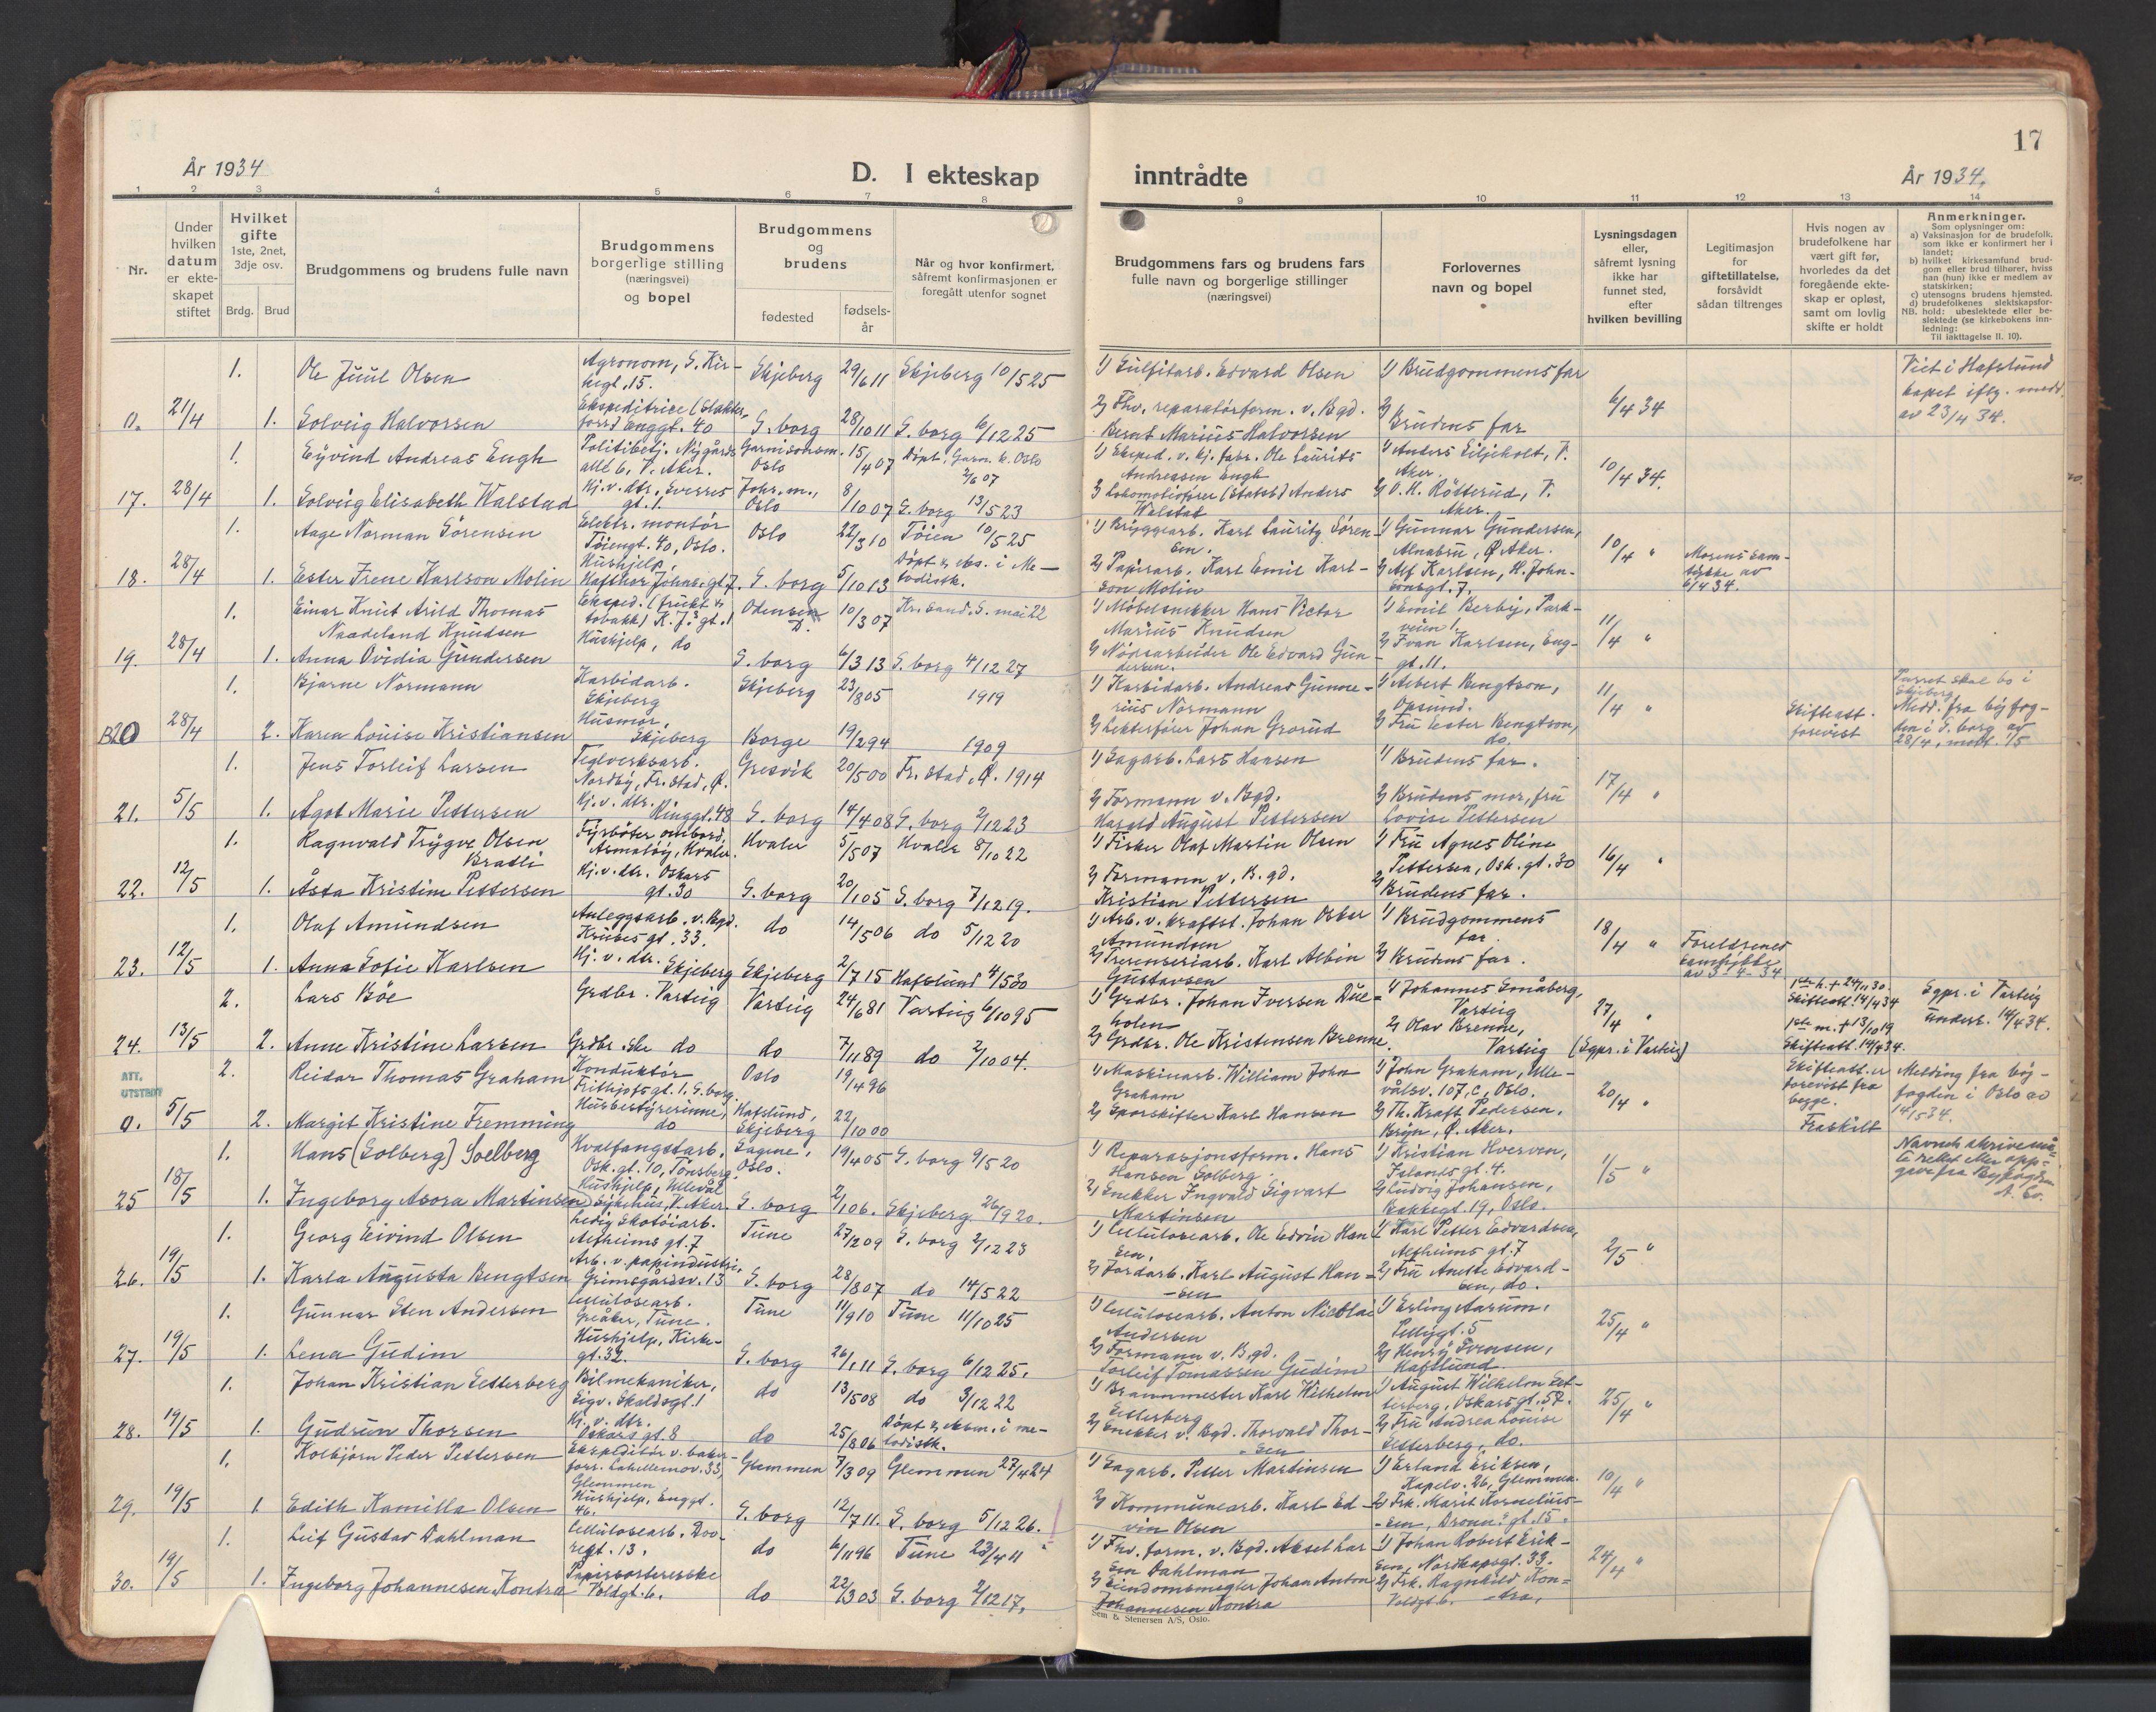 17
År 1934
D. I ekteskap
inntrådte
År 1934
1 2 3 4 5 6 7 8
9 10 11 12 13 14
Nr.
Under
hvilken
datum
er ekte-
skapet
stiftet
Hvilket
gifte
1ste, 2net,
3dje osv.
Brdg. Brud
Brudgommens og brudens fulle navn
Brudgommens
borgerlige stilling
(næringsvei)
og bopel
Brudgommens
og
brudens
fødested
fødsels-
år
Når og hvor konfirmert,
såfremt konfirmasjonen er
foregått utenfor sognet
Brudgommens fars og brudens fars
fulle navn og borgerlige stillinger
(næringsvei)
Forlovernes
navn og bopel
Lysningsdagen
eller,
såfremt lysning
ikke har
funnet sted,
efter
hvilken bevilling
Legitimasjon
for
giftetillatelse,
forsåvidt
sådan tiltrenges
Hvis nogen av
brudefolkene har
vært gift før,
hvorledes da det
foregående ekte-
skap er opløst,
samt om lovlig
skifte er holdt
Anmerkninger.
Som oplysninger om:
a) Vaksinasjon for de brudefolk.
som ikke er konfirmert her i
landet;
b) hvilket kirkesamfund brud-
gom eller brud tilhører, hviss
han (hun) ikke er medlem av
statskirken;
c) utensogns brudens hjemsted.
d) brudefolkenes slektskapsfor-
NB. hold: ubeslektede eller be-
slektede (se kirkebokens inn-
ledning:
Til iakttagelse II. 10).
1. Ole Juul Olsen Agronom, S. Kir-
kegt. 15. Skjeberg 29/6 11 Skjeberg 10/5 25
1) Sulfitarb. Edvard Olsen 1) Brudgommens far
Viet i Hafslund
kapel iflg. medd.
av 23/4 34.
0. 21/4 1. Solveig Halvorsen Ekspeditrice (Slakter-
forr.) Enggt. 40 S. borg 28/10 11 S. borg 6/12 25
2) Fhv. reparatørform. v. Bgd.
Bernt Marius Halvorsen 2) Brudens far 6/4 34
1. Eyvind Andreas Engh Politibetj. Nygårds
allé 6, V. Aker. Garnisonsm.
Oslo 15/4 07 Døpt i Garn. k. Oslo
2/6 07
1) Eksped. v. kj. fabr. Ole Laurits
Andreassen Engh 1) Anders Liljeholt, V.
Aker. 10/4 34.
17. 28/4 1. Solveig Elisabeth Walstad Hj. v. dtr. Sverres
gt. 1. Joh. m.,
Oslo 8/10 07 S. borg 13/5 23
2) Lokomotivfører (Statsb.) Anders
Walstad 2) O. H. Røtterud, V.
Aker.
1. Aage Norman Sörensen Elektr. montör
Töiengt. 40, Oslo. Oslo 22/3 10 Töien 10/5 25
1) Bryggearb. Karl Lauritz Sören-
sen. 1) Gunnar Gundersen,
Alnabru, Ø. Aker. 10/4 "
18. 28/4 1. Ester Irene Karlson Molin Hushjelp,
Hafthor Jöhns. gt. 7 S. borg 5/10 13 Døpt & obs. i Me-
todistk.
2) Papirarb. Karl Emil Karl-
son Molin 2) Alf Karlsen, H. John-
sonsgt. 7. Morens sam-
tykke av
6/4 34.
1. Einar Knut Arild Thomas
Naadeland Knudsen Eksped. (frukt &
tobakk) K. J.s gt. 1 Odensen
D. 10/3 07 Kr. sand. S. mai 22
1) Möbelsnekker Hans Victor
Marius Knudsen 1) Emil Berby, Park-
veien 1. 11/4 "
19. 28/4 1. Anna Ovidia Gundersen Hushjelp, do S. borg 6/3 13 S. borg 4/12 27
2) Nödsarbeider Ole Edvard Gun-
dersen. 2) Ivan Karlsen, Eng-
gt. 11.
1. Bjarne Normann Karbidarb.
Skjeberg Skjeberg 23/8 05 1919
1) Karbidarb. Andreas Gunne-
rius Normann 1) Albert Bengtson,
Opsund. 11/4 "
Parret skal bo i
Skjeberg.
B20 28/4 2. Karen Louise Kristiansen Husmor,
Skjeberg Borge 19/2 94 1909
2) Lekterfører Johan Grorud 2) Fru Ester Bengtson,
do Skifteatt.
forevist Medd. fra byfog-
den i S. borg av
28/4, mott. 1/5
1. Jens Torleif Larsen Teglverksarb.
Nordby, Fr. stad, Ø. Gresvik 20/5 00 Fr. stad, Ø. 1914
1) Sagarb. Lars Hansen 1) Brudens far. 17/4 "
21. 5/5 1. Ågot Marie Pettersen Hj. v. dtr.
Ringgt. 48 S. borg 14/4 08 S. borg 2/12 23
2) Formann v. Bgd.
Harald August Pettersen 2) Brudens mor, fru
Lovise Pettersen
1. Ragnvald Trygve Olsen
Bratli Fyrböter ombord,
Asmalöy, Hvaler. Hvaler 5/5 07 Hvaler 8/10 22
1) Fisker Olaf Martin Olsen 1) Fru Agnes Oline
Pettersen, Osk. gt. 30 16/4 "
22. 12/5 1. Åsta Kristine Pettersen Hj. v. dtr. Oskars
gt. 30 S. borg 20/1 05 S. borg 7/12 19.
2) Formann v. B. gd.
Kristian Pettersen 2) Brudens far.
1. Olaf Amundsen Anleggsarb. v. Bgd.
Krubes gt. 33. do 14/5 06 do 5/12 20
1) Arb. v. kraftst. Johan Oskar
Amundsen 1) Brudgommens
far. 18/4 "
23. 12/5 1. Anna Sofie Karlsen Hj. v. dtr. Skjeberg Skjeberg 2/7 15 Hafslund 4/5 30
2) Karl Albin
Gustavsen 2) Brudens far. Foreldrenes
samtykke
av 3-4-34
2. Lars Böe Grdbr. Varteig Varteig 24/6 81 Varteig 6/10 95
1) Grdbr. Johan Iversen Due-
holen 1) Johannes Småberg,
Varteig 27/4 " 1ste h. † 24/11 30.
Skifteatt. 14/4 34 Sgpr. i Varteig
underr. 14/4 34.
24. 13/5 2. Anne Kristine Larsen Grdbr. ske do do 7/11 89 do 2/10 04.
2) Grdbr. Ole Kristensen Brenne. 2) Olav Brenne,
Varteig (Sgpr. i Varteig) 1ste m. † 13/10 19
Skifteatt. 14/4 34.
ATT.
UTSTEDT
2. Reidar Thomas Graham Konduktör
Frithjofs gt. 1. S. borg. Oslo 19/4 96
1) Maskinarb. William John
Graham 1) John Graham, Ulle-
vålsv. 107, c, Oslo. 20/4 " Skifteatt. er
forevist fra
begge. Melding fra by-
fogden i Oslo av
14/5 34.
0. 5/5 2. Margit Kristine Fremming Husbestyrerinne,
do Hafslund,
Skjeberg 22/10 00
2) Sporskifter Karl Hansen 2) Th. Kraft Pedersen.
Bryn, Ø. Aker. Fraskilt
1. Hans (Solberg) Soelberg Hvalfangstarb.
Osk. gt. 10, Tönsberg Sagene,
Oslo. 19/4 05 S. borg 9/5 20
1) Reparasjonsform. Hans
Hansen Solberg. 1) Kristian Hverven,
Islands gt. 4. 1/5 "
25 18/5 1. Ingeborg Asora Martinsen Hushjelp, Ullevål
sykehus, V. Aker. S. borg 2/1 06. Skjeberg 26/9 20.
2) Snekker Ingvald Sigvart
Martinsen 2) Ludvig Johansen,
Bakkegt. 19, Oslo.
1. Georg Eivind Olsen Ledig Skotöiarb.
Alfheims gt. 7 Tune 27/2 09 S. borg 2/12 23
1) Cellulosearb. Ole Edvin Han-
sen. 1) Karl Petter Edvardsen,
Alfheims gt. 7 2/5 "
26. 19/5 1. Karla Augusta Bengtsen Arb. v. papindustri,
Grimsgårdsv. 13 S. borg 28/8 07 do 14/5 22
2) Jordarb. Karl August Han-
sen 2) Fru Anette Edvard-
sen, do.
1. Gunnar Sten Andersen Cellulosearb.
Greåker, Tune. Tune 11/9 10 Tune 11/10 25
1) Cellulosearb. Anton Nicolai
Andersen 1) Erling Aarum,
Pellygt. 5 25/4 "
27. 19/5 1. Lena Gudim Hushjelp, Kirke-
gt. 32. S. borg 26/1 11 S. borg 6/12 25.
2) Formann v. B. gd.
Torleif Tomassen Gudim 2) Henry Svensen,
Hafslund.
1. Johan Kristian Setterberg Bilmekaniker,
Sigv. Skaldsgt. 1 do 13/5 08 do 3/12 22
1) Brannmester Karl Wilhelm
Setterberg 1) August Wilhelm Set-
terberg, Oskars gt. 57. 25/4 "
28. 19/5 1. Gudrun Thorsen Hj. v. dtr.
Oskars gt. 8 do 25/8 06 Døpt & obsn. i me-
todistk.
2) Snekker v. Bgd. Thorvald Thor-
sen 2) Fru Andrea Louise
Setterberg, do.
1. Kolbjörn Peder Pettersen Ekspeditör v. baker-
forr. Lahellemov. 33,
Glemmen Glemmen 7/3 09 Glemmen 27/4 24
1) Sagarb. Petter Martinsen 1) Erland Eriksen,
Kapelv. 26, Glemmen. 10/4 "
29. 19/5 1 Edith Kamilla Olsen Hushjelp, Enggt.
46. S. borg 12/7 11. S. borg 5/12 26.
2) Kommunearb. Karl Ed-
vin Olsen 2) Frk. Marit Kornelius-
sen, Dronn.s gt. 15.
1. Leif Gustav Dahlman Cellulosearb. Roo-
segt. 13. do 6/11 96 Tune 23/4 11
1) Fhv. form. v. Bgd. Aksel Lar-
sen Dahlman 1) Johan Robert Erik-
sen, Nordkapsgt. 33. 24/4 "
30. 19/5 1. Ingeborg Johannesen Kontra Papirsortererske
Voldgt. 6. do 22/3 03 S. borg 2/12 17,
2) Eiendomsmegler Johan Anton
Johannesen Kontra 2) Frk. Ragnhild Kon-
tra,
Voldgt. 6.
Sem & Stenersen A/S, Oslo.